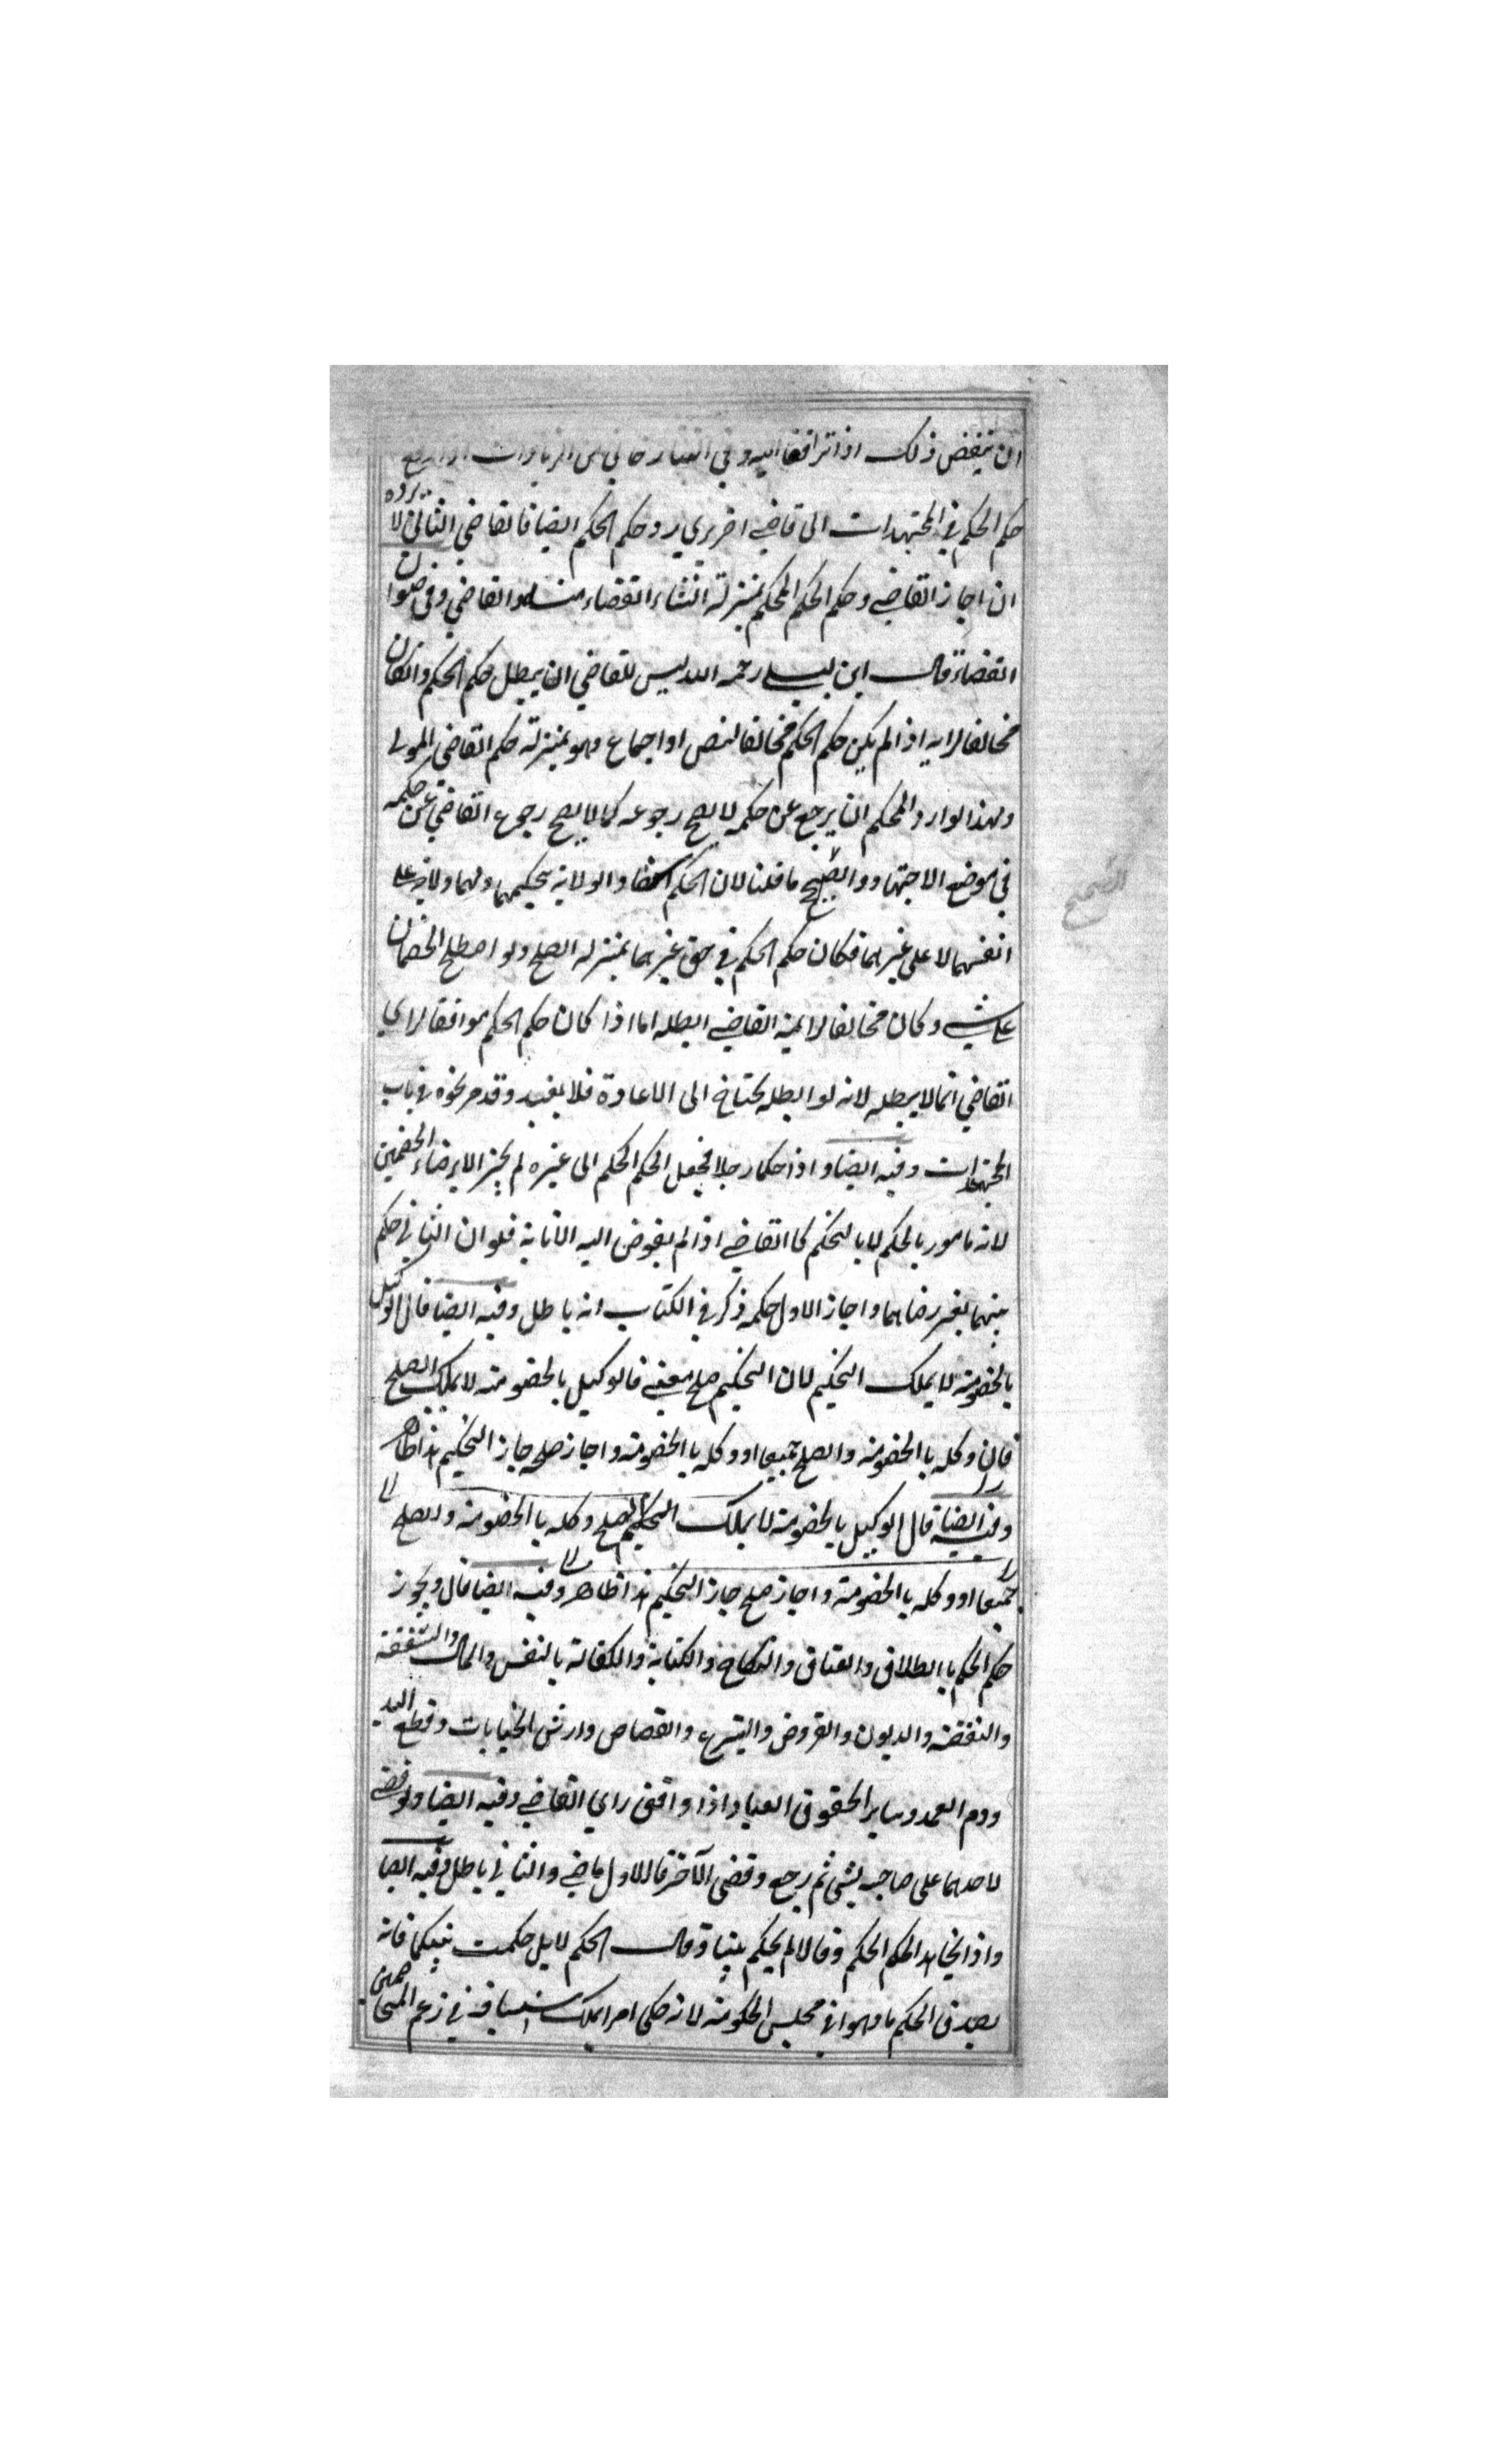 ان ينقض ذلك اذا ترافعا اليه وفي التتارخاني من الزيادات اذا رفع
حكم الحكم في المجتهدات الى قاضي اخر يري رد حكم الحكم ايضا فالقاضي الثاني لا يرده
ان اجاز القاضي وحكم الحكم المحكم بمنزلة انشاء القضاء من القاضي وفي
القضاة قال ابن ليلى رحمه الله ليس للقاضي ان يبطل حكم الحكم وانكان
مخالفا لرايه اذا لم يكن حكم الحكم مخالفا لنص او اجماع وهو بمنزلة حكم القاضي المولى
ولهذا لو اراد المحكم ان يرجع عن حكمه لا يصح رجوعه كما لا يصح رجوع القاضي عن حكمه
في موضع الاجتهاد والصحيح ما قلنا لان الحكم استفاد الولاية بتحكيمهما ولهما ولاية على
الصحيح
انفسهما لا على غيرهما فكان حكم الحكم في حق غيرهما بمنزله الصلح ولو اصطلح الخصمان
على شي وكان مخالفا لراي القاضي ابطله اما اذا كان حكم الحكم موافقا لراي
القاضي انما لا يبطله لانه لو ابطله يحتاج الى الاعادة فلا يفيد وقد مر نحوه في باب
المجتهدات وفيه ايضا واذا حكما رجلا فجعل الحكم الحكم الى غيره لم يجز الا برضاء الخصمين
لانه مامور بالحكم لا بالتحكم كالقاضي اذا لم يفوض اليه الانابة فلو ان الثاني حكم
بينهما بغير رضاهما واجاز الاول حكمه ذكر في الكتاب انه باطل وفيه ايضا قال الوكيل
بالخصومة لا يملك التحكيم لان التحكيم صلح معنى فالوكيل بالخصومة لا يملك الصلح
فان وكله باالخصومة والصلح جميعا او وكله باالخصومة واجاز صلحه جاز التحكيم هذا ظاهر
وفيه ايضا قال الوكيل بالخصومة لا يملك التحكيم الصلح وكله باالخصومة والصلح
جميعا او وكله باالخصومة واجاز صلح جاز التحكيم هذا ظاهر وفيه ايضا قال ويجوز
حكم الحكم باالطلاق والعتاق والنكاح والكتابة والكفالة بالنفس والمال والشفعة
والنفقة والديون والقروض والبيوع والقصاص وارش الجنايات وقطع اليد
ودم العمد وساير الحقوق العباد اذا وافق راي القاضي وفيه ايضا ولو قضى
لاحدهما على صاحبه بشي ثم رجع وقضى الآخر فالاول ماضي والثاني باطل وفيه ايضا
واذا تجاحد الحكم الحكم وقالا لم يحكم بيننا وقال الحكم لا بل حكمت بينكما فانه
يصدق الحكم ما دموا في مجلس الحكومة لانه حكى امرا يملك استينافه في زعم المتخاصمين